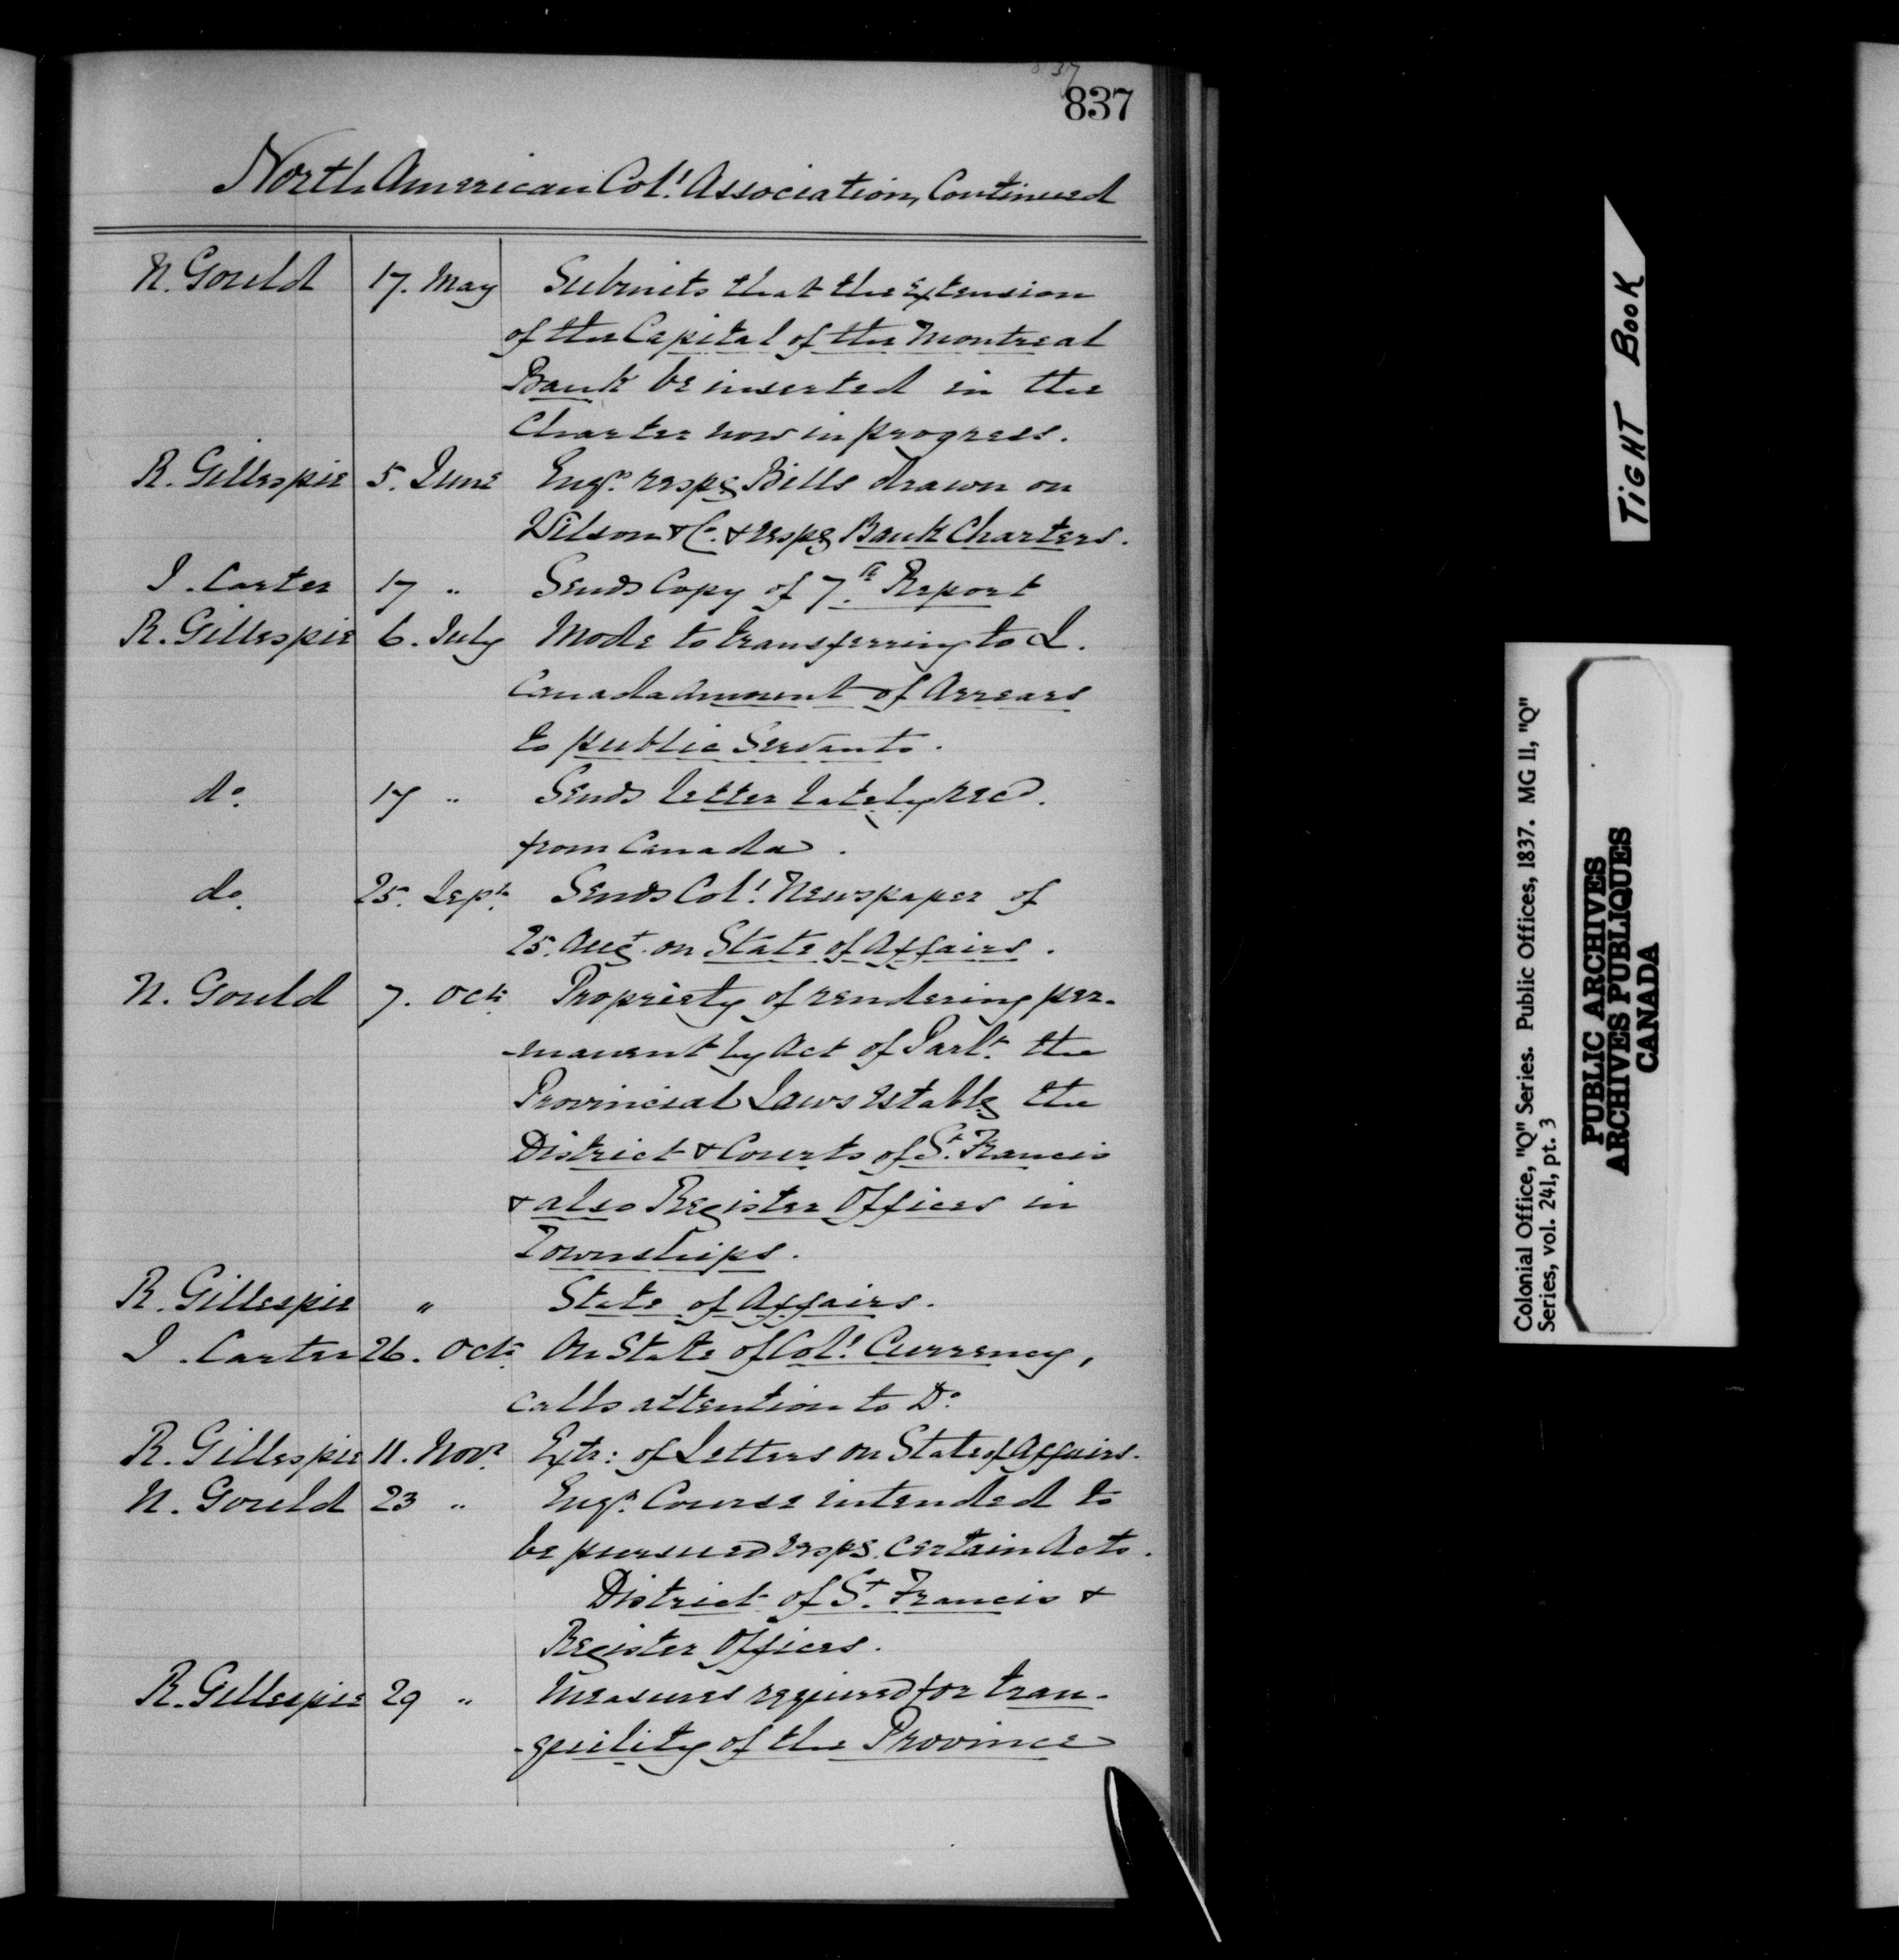 837
837
North American Col! Association, Continued
N. Gould 17. May Submits that the Extension
of the Capital of the Montreal
Bank be inserted in the
Charter now in progress.
R. Gillespie 5. June Enqs. respg Bills drawn on
Wilson & Co. & respg Bank Charters.
J. Carter 17 " Sends Copy of 7th Report
R. Gillespie 6. July Mode to transferring to L.
Canada amount of Arrears
to public Servants.
do. 17 " Sends letter lately recd.
from Canada.
do. 25. Sept. Sends Col! Newspaper of
25. Augt. on State of Affairs.
N. Gould 7. Oct. Propriety of rendering per-
-manent by Act of Parlt. the
Provincial Laws establg the
District & Courts of St. Francis
& also Register Offices in
Townships.
R. Gillespie " State of Affairs.
J. Carter 26. Oct. On State of Col! Currency,
calls attention to Do.
R. Gillespie 11. Novr. Extr: of Letters on State of Affairs.
N. Gould 23 " Enqs. Course intended to
be pursued respg. certain Acts.
District of St. Francis &
Register Offices.
R. Gillespie 29 " Measures required for tran-
-quility of the Province
TIGHT BOOK
Colonial Office, "Q" Series. Public Offices, 1837. MG 11, "Q"
Series, vol. 241, pt. 3
PUBLIC ARCHIVES
ARCHIVES PUBLIQUES
CANADA